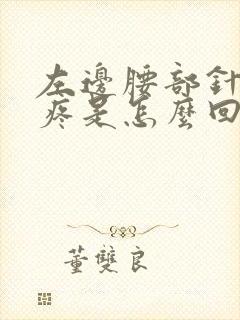 左邊腰部針
疼是怎麼回
董雙良